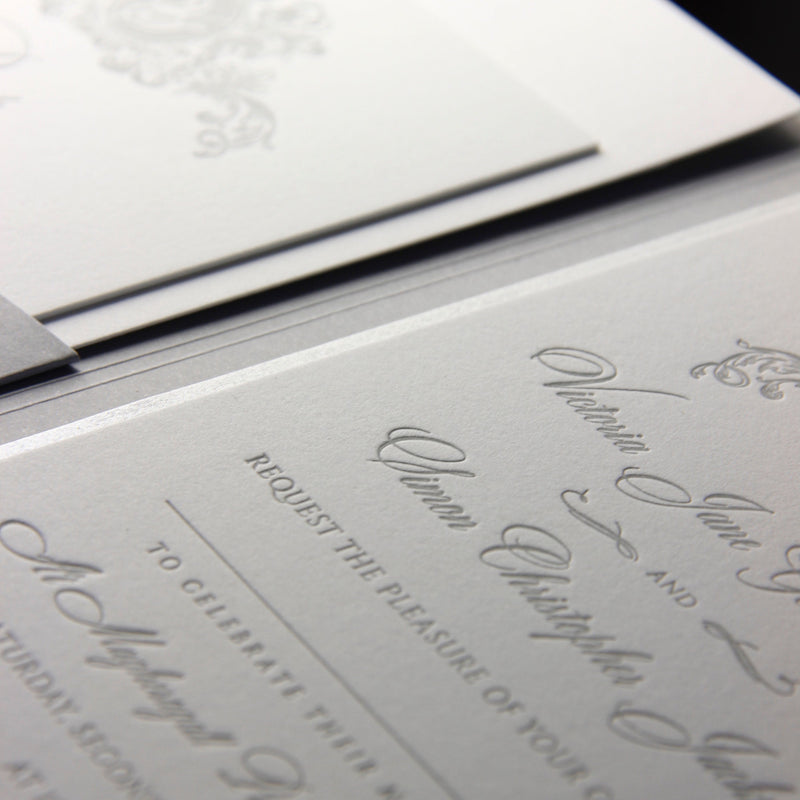 Victoria Jane
AND
Simon Christopher
REQUEST THE PLEASURE OF YOUR
TO CELEBRATE THEIR
At
SATURDAY, SECOND
AT